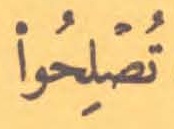 تُصْلِحُوا۟